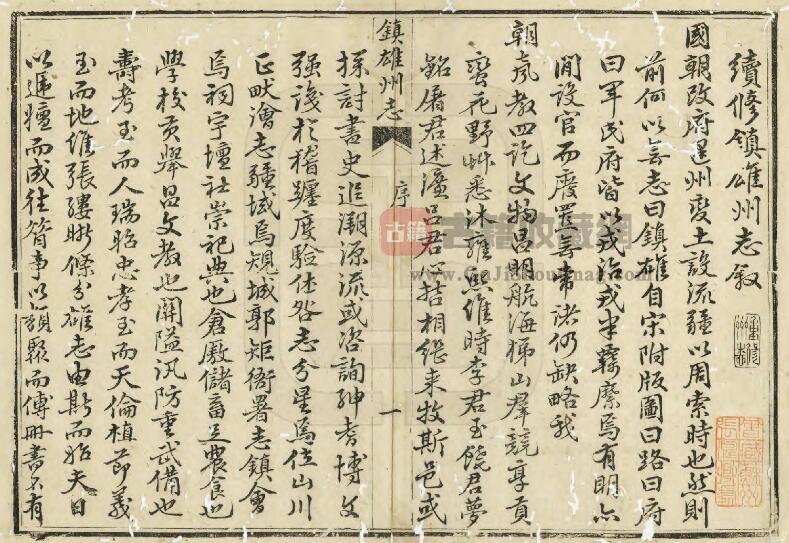 續修鎮雄州志敘
國朝改府還州變土設流疆以周索時也然則
前何以無志曰鎮雄自宋附版圖曰路曰府
曰軍民府皆以戎治戎半羈縻焉有明亦
間設官而廢置無常諸仍缺略我
朝聲教四訖文物昌明航海梯山群競享貢
蠻花野艸悉沐雍熙維時李君至饒君夢
銘屠君述濂呂君 拮相繼来牧斯邑或
探討書史追溯源流或咨詢紳耆博文
强識於稽躔度驗休咎志分星焉位山川
正畎澮志疆域焉規城郭矩衙署志鎮會
焉祠宇壇社崇祀典也倉廒儲畜足農食也
學校貢舉昌文教也關隘汛防重武備也
壽考至而人瑞昭忠孝至而天倫植節義
至而地維張縷晰條分雄志由斯而昉夫日
以遞嬗而成往簪事以類聚而傳冊書不有
鎮雄州志
序
一
古籍
古籍收藏網
www.GuJiShouCang.com